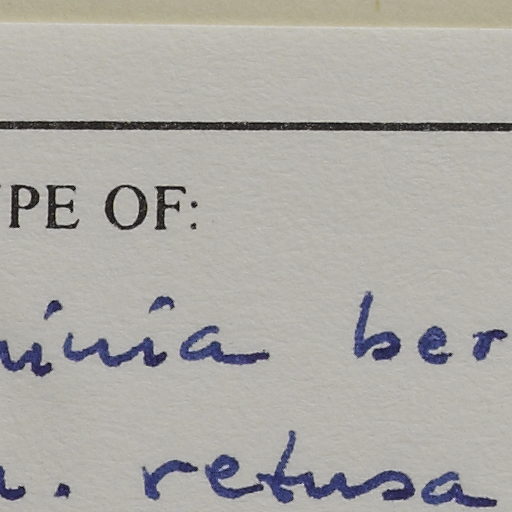 YPE OF:
inia ber
. retusa